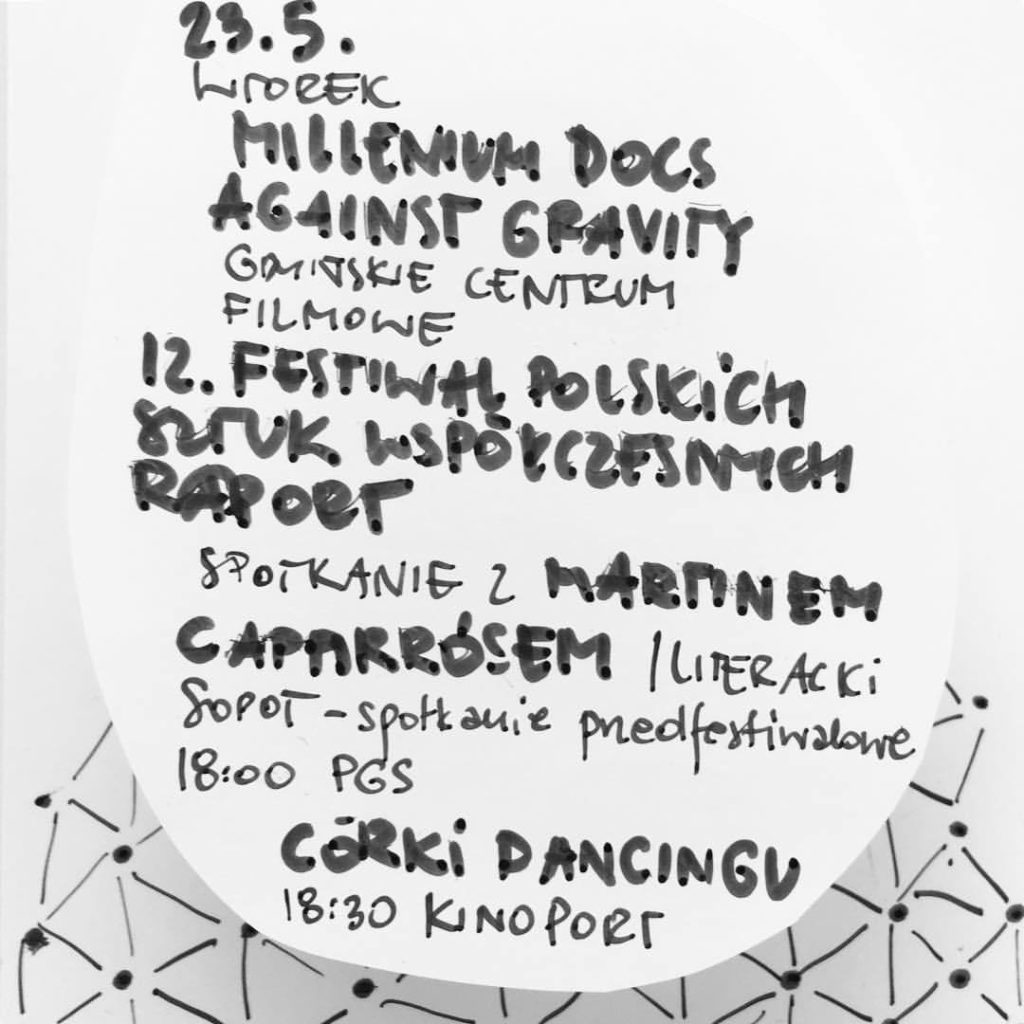 23.5.
WTOREK
MILLENIUM DOCS
AGAINST GRAVITY
GDAŃSKIE CENTRUM
FILMOWE
12. FESTIWAL POLSKICH
SZTUK WSPÓŁCZESNYCH
RAPORT
SPOTKANIE Z MARTINEM
CAPARRÓSEM /LITERACKI
SOPOT - spotkanie przedfestiwalowe
18:00 PGS
CÓRKI DANCINGU
18:30 KINOPORT